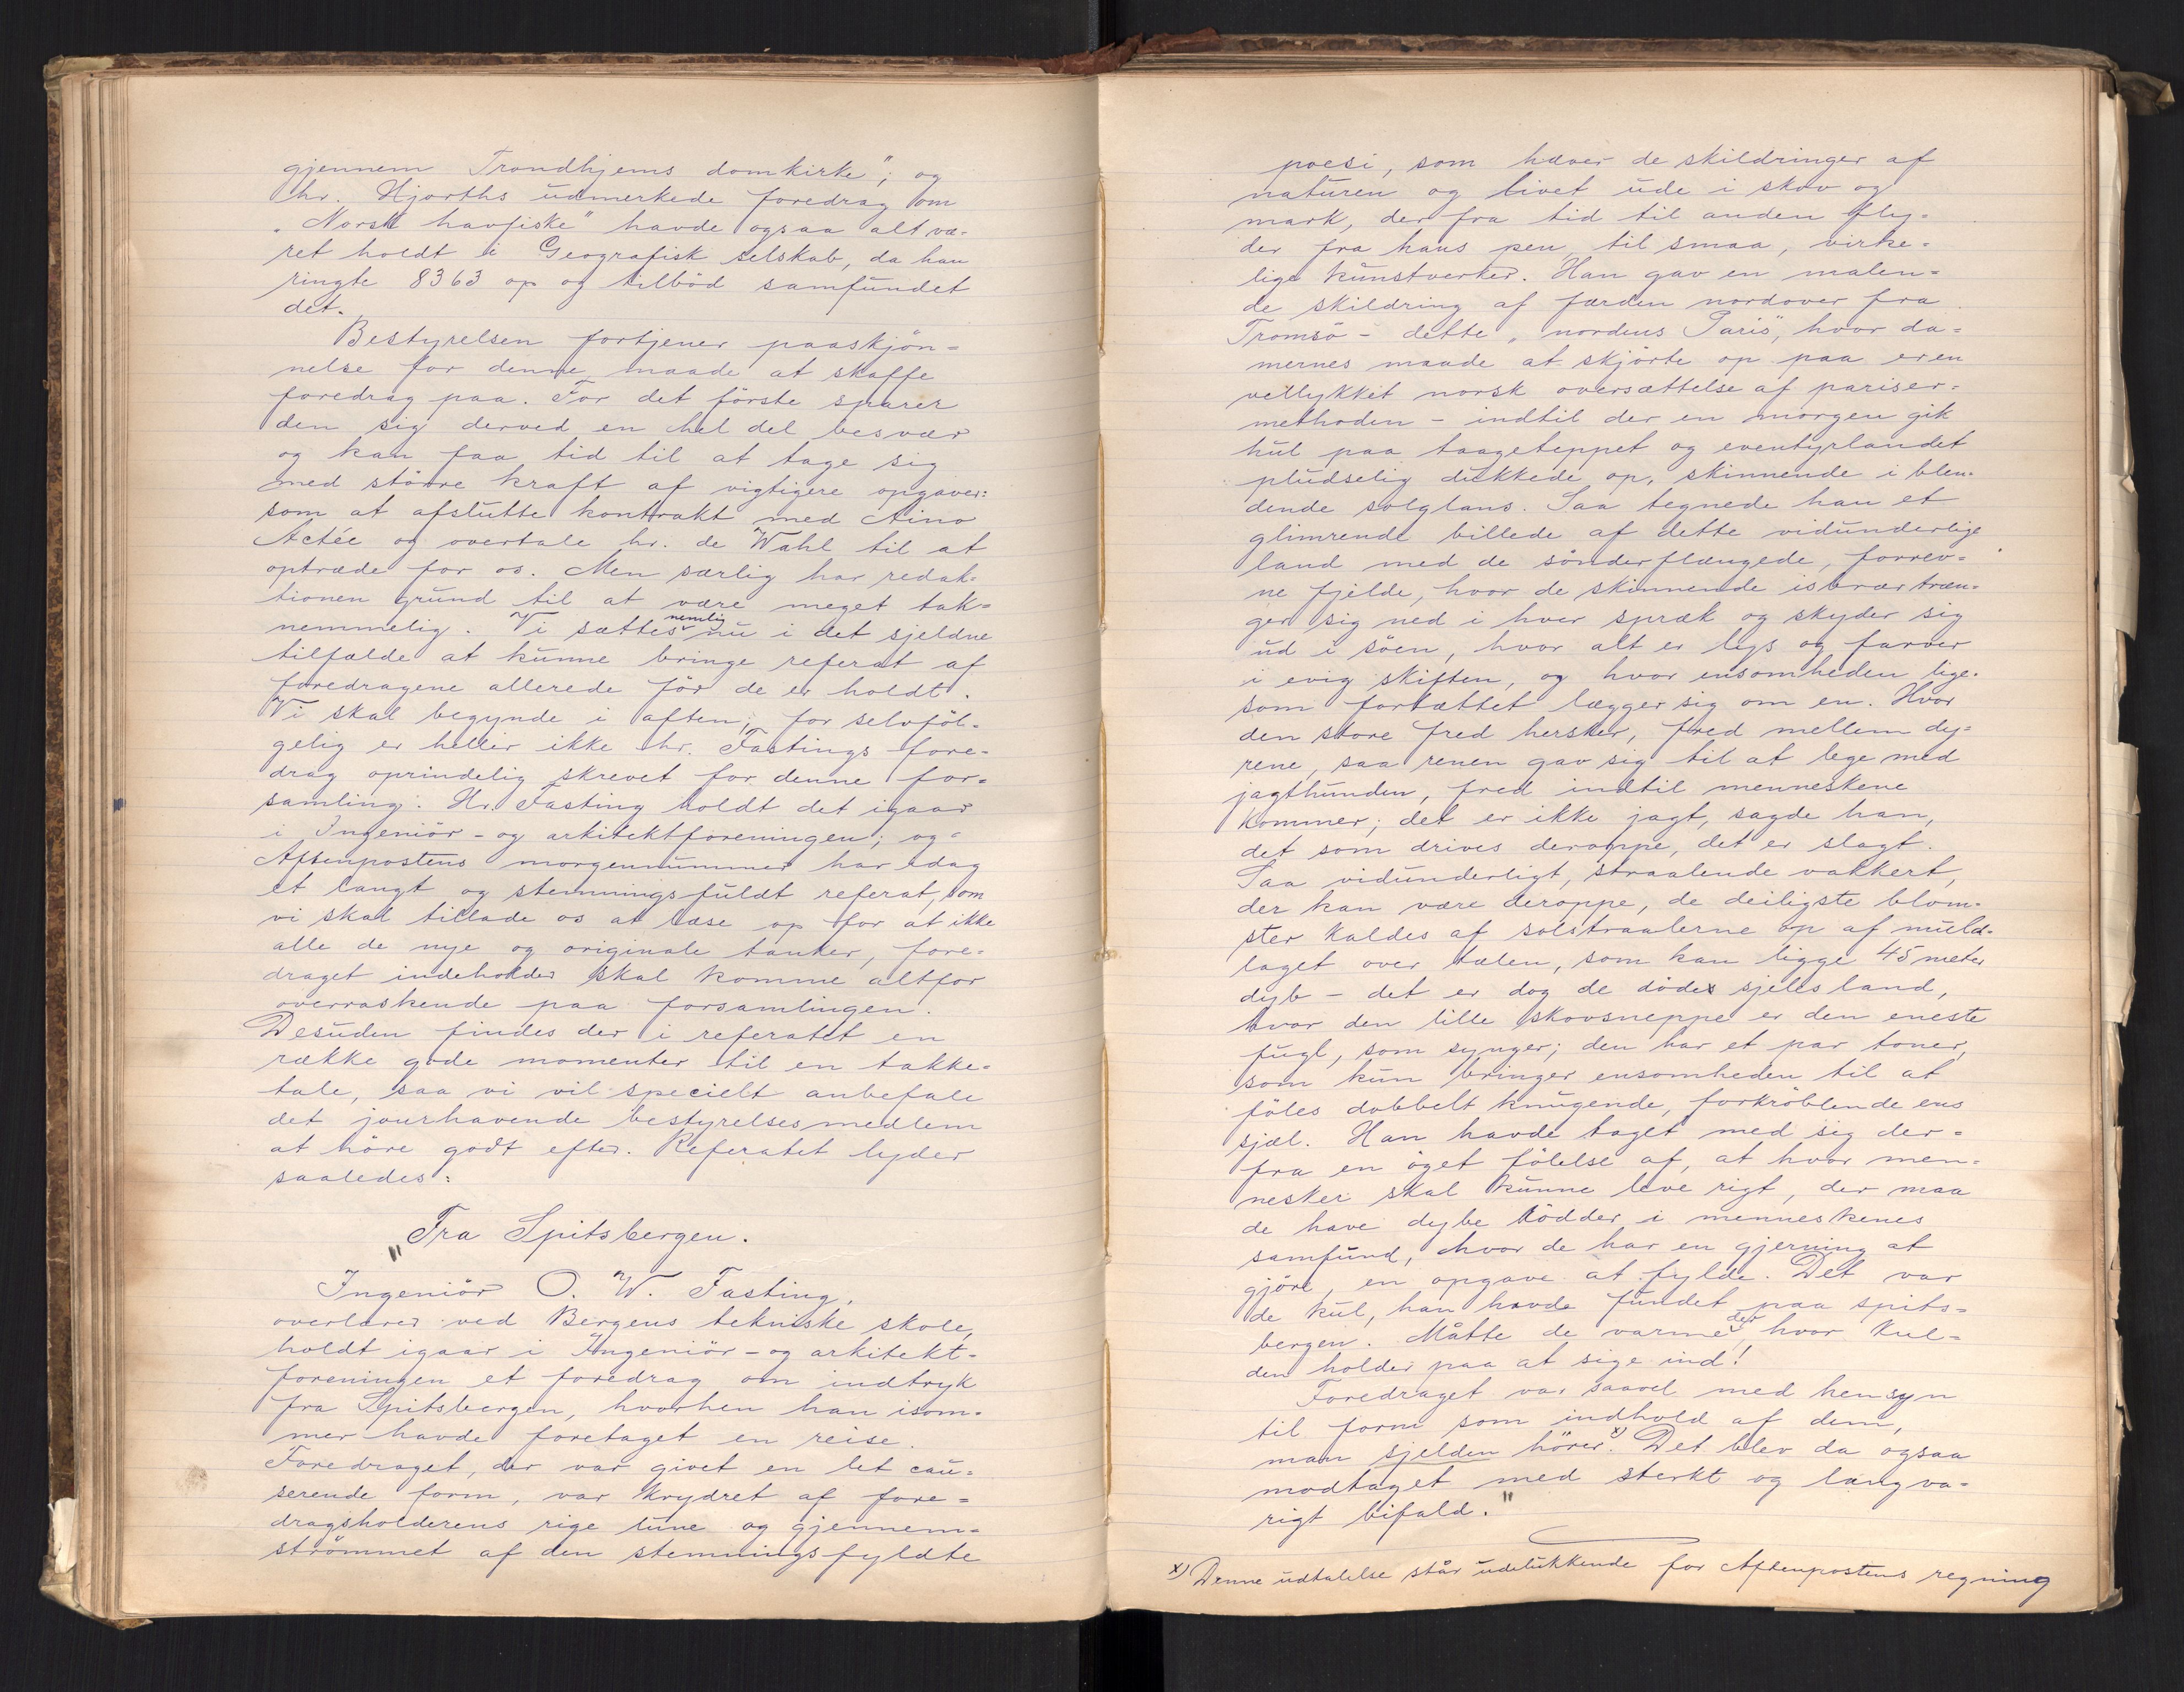 gjennem Trondhjems domkirke"; og
hr. Hjorths udmerkede foredrag om
„Norsk havfiske" havde ogsaa alt væ-
ret holdt i Geografisk selskab, da han
ringte 8363 op og tilböd samfundet
det.
Bestyrelsen fortjener paaskjön-
nelse for denne maade at skaffe
foredrag paa. For det förste sparer
den sig derved en hel del besvær
og kan faa tid til at tage sig
med större kraft af vigtigere opgaver:
som at afslutte kontrakt med Aino
Actée og overtale hr. de Wahl til at
optræde for os. Men særlig har redak-
tionen grund til at være meget tak-
nemmelig. Vi sættes nemlig nu i det sjeldne
tilfælde at kunne bringe referat af
foredragene allerede för de er holdt.
Vi skal begynde i aften; for selvföl-
gelig er heller ikke hr. Fastings fore-
drag oprindelig skrevet for denne for-
samling. Hr. Fasting holdt det igaar
i Ingeniör- og arkitektforeningen; og
Aftenpostens morgennummer har idag
et langt og stemningsfuldt referat, som
vi skal tillade os at læse op for at ikke
alle de nye og originale tanker, fore-
draget indeholder skal komme altfor
overraskende paa forsamlingen.
Desuden findes der i referatet en
række gode momenter til en takke-
tale, saa vi vil specielt anbefale
det jourhavende bestyrelsesmedlem
at höre godt efter. Referatet lyder
saaledes:
„Fra Spitsbergen.
Ingeniör O. W. Fasting,
overlærer ved Bergens tekniske skole,
holdt igaar i Ingeniör- og arkitekt-
foreningen et foredrag om indtryk
fra Spitsbergen, hvorhen han isom-
mer havde foretaget en reise.
Foredraget, der var givet en let cau-
serende form, var krydret af fore-
dragsholderens rige lune og gjennem-
strömmet af den stemningsfyldte
poesi, som hæver de skildringer af
naturen og livet ude i skov og
mark, der fra tid til anden fly-
der fra hans pen, til smaa, virke-
lige kunstverker. Han gav en malen-
de skildring af færden nordover fra
Tromsö - dette „nordens Paris", hvor da-
mernes maade at skjörte op paa er en
vellykket norsk oversættelse af pariser-
methoden - indtil der en morgen gik
hul paa taageteppet og eventyrlandet
pludselig dukkede op, skinnende i blen-
dende solglans. Saa tegnede han et
glimrende billede af dette vidunderlige
land med de sönderflængede, forrev-
ne fjelde, hvor de skinnende isbræer træn-
ger sig ned i hver spræk og skyder sig
ud i söen, hvor alt er lys og farver
i evig skiften, og hvor ensomheden lige-
som fortættet lægger sig om en. Hvor
den store fred hersker, fred mellem dy-
rene, saa renen gav sig til at lege med
jagthunden, fred indtil menneskene
kommer; det er ikke jagt, sagde han,
det som drives deroppe, det er slagt.
Saa vidunderligt, straalende vakkert,
der kan være deroppe, de deiligste blom-
ster kaldes af solstraalerne op af muld-
laget over tælen, som kan ligge 45 meter
dyb - det er dog de dödes sjeles land,
hvor den lille skovsneppe er den eneste
fugl, som synger; den har et par toner,
som kun bringer ensomheden til at
föles dobbelt knugende, forkröblende ens
sjæl. Han havde taget med sig der-
fra en öget fölelse af, at hvor men-
nesker skal kunne leve rigt, der maa
de have dybe rödder i menneskenes
samfund, hvor de har en gjerning at
gjöre, en opgave at fylde. Det var
de kul, han havde fundet paa Spits-
bergen. Måtte de varme der, hvor kul-
den holder paa at sige ind!
Foredraget var saavel med hensyn
til form som indhold af dem,
man sjelden hörer x). Det blev da ogsaa
modtaget med sterkt og langva-
rigt bifald."
x) Denne udtalelse står udelukkende for Aftenpostens regning